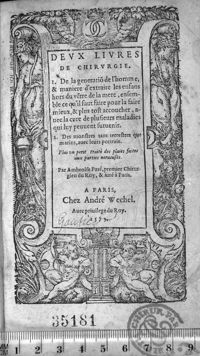 DEVX LIVRES
DE CHIRVRGIE.
1. De la generatiõ de l'homme,
& maniere d'extraire les enfans
hors du vẽtre de la mere, ensem-
ble ce qu'il faut faire pour la faire
mieux, & plus tost accoucher, a-
uec la cure de plusieurs maladies
qui luy peuuent suruenir.
2. Des monstres tant terrestres que
marins, auec leurs portrais.
Plus vn petit traité des plaies faites
aux parties nerueuses.
Par Ambroise Paré, premier Chirur-
gien du Roy, & iuré à Paris.
A PARIS,
Chez André Wechel,
Auec priuilege du Roy.
1573
35181
1 2 3 4 5 6 7 8 9